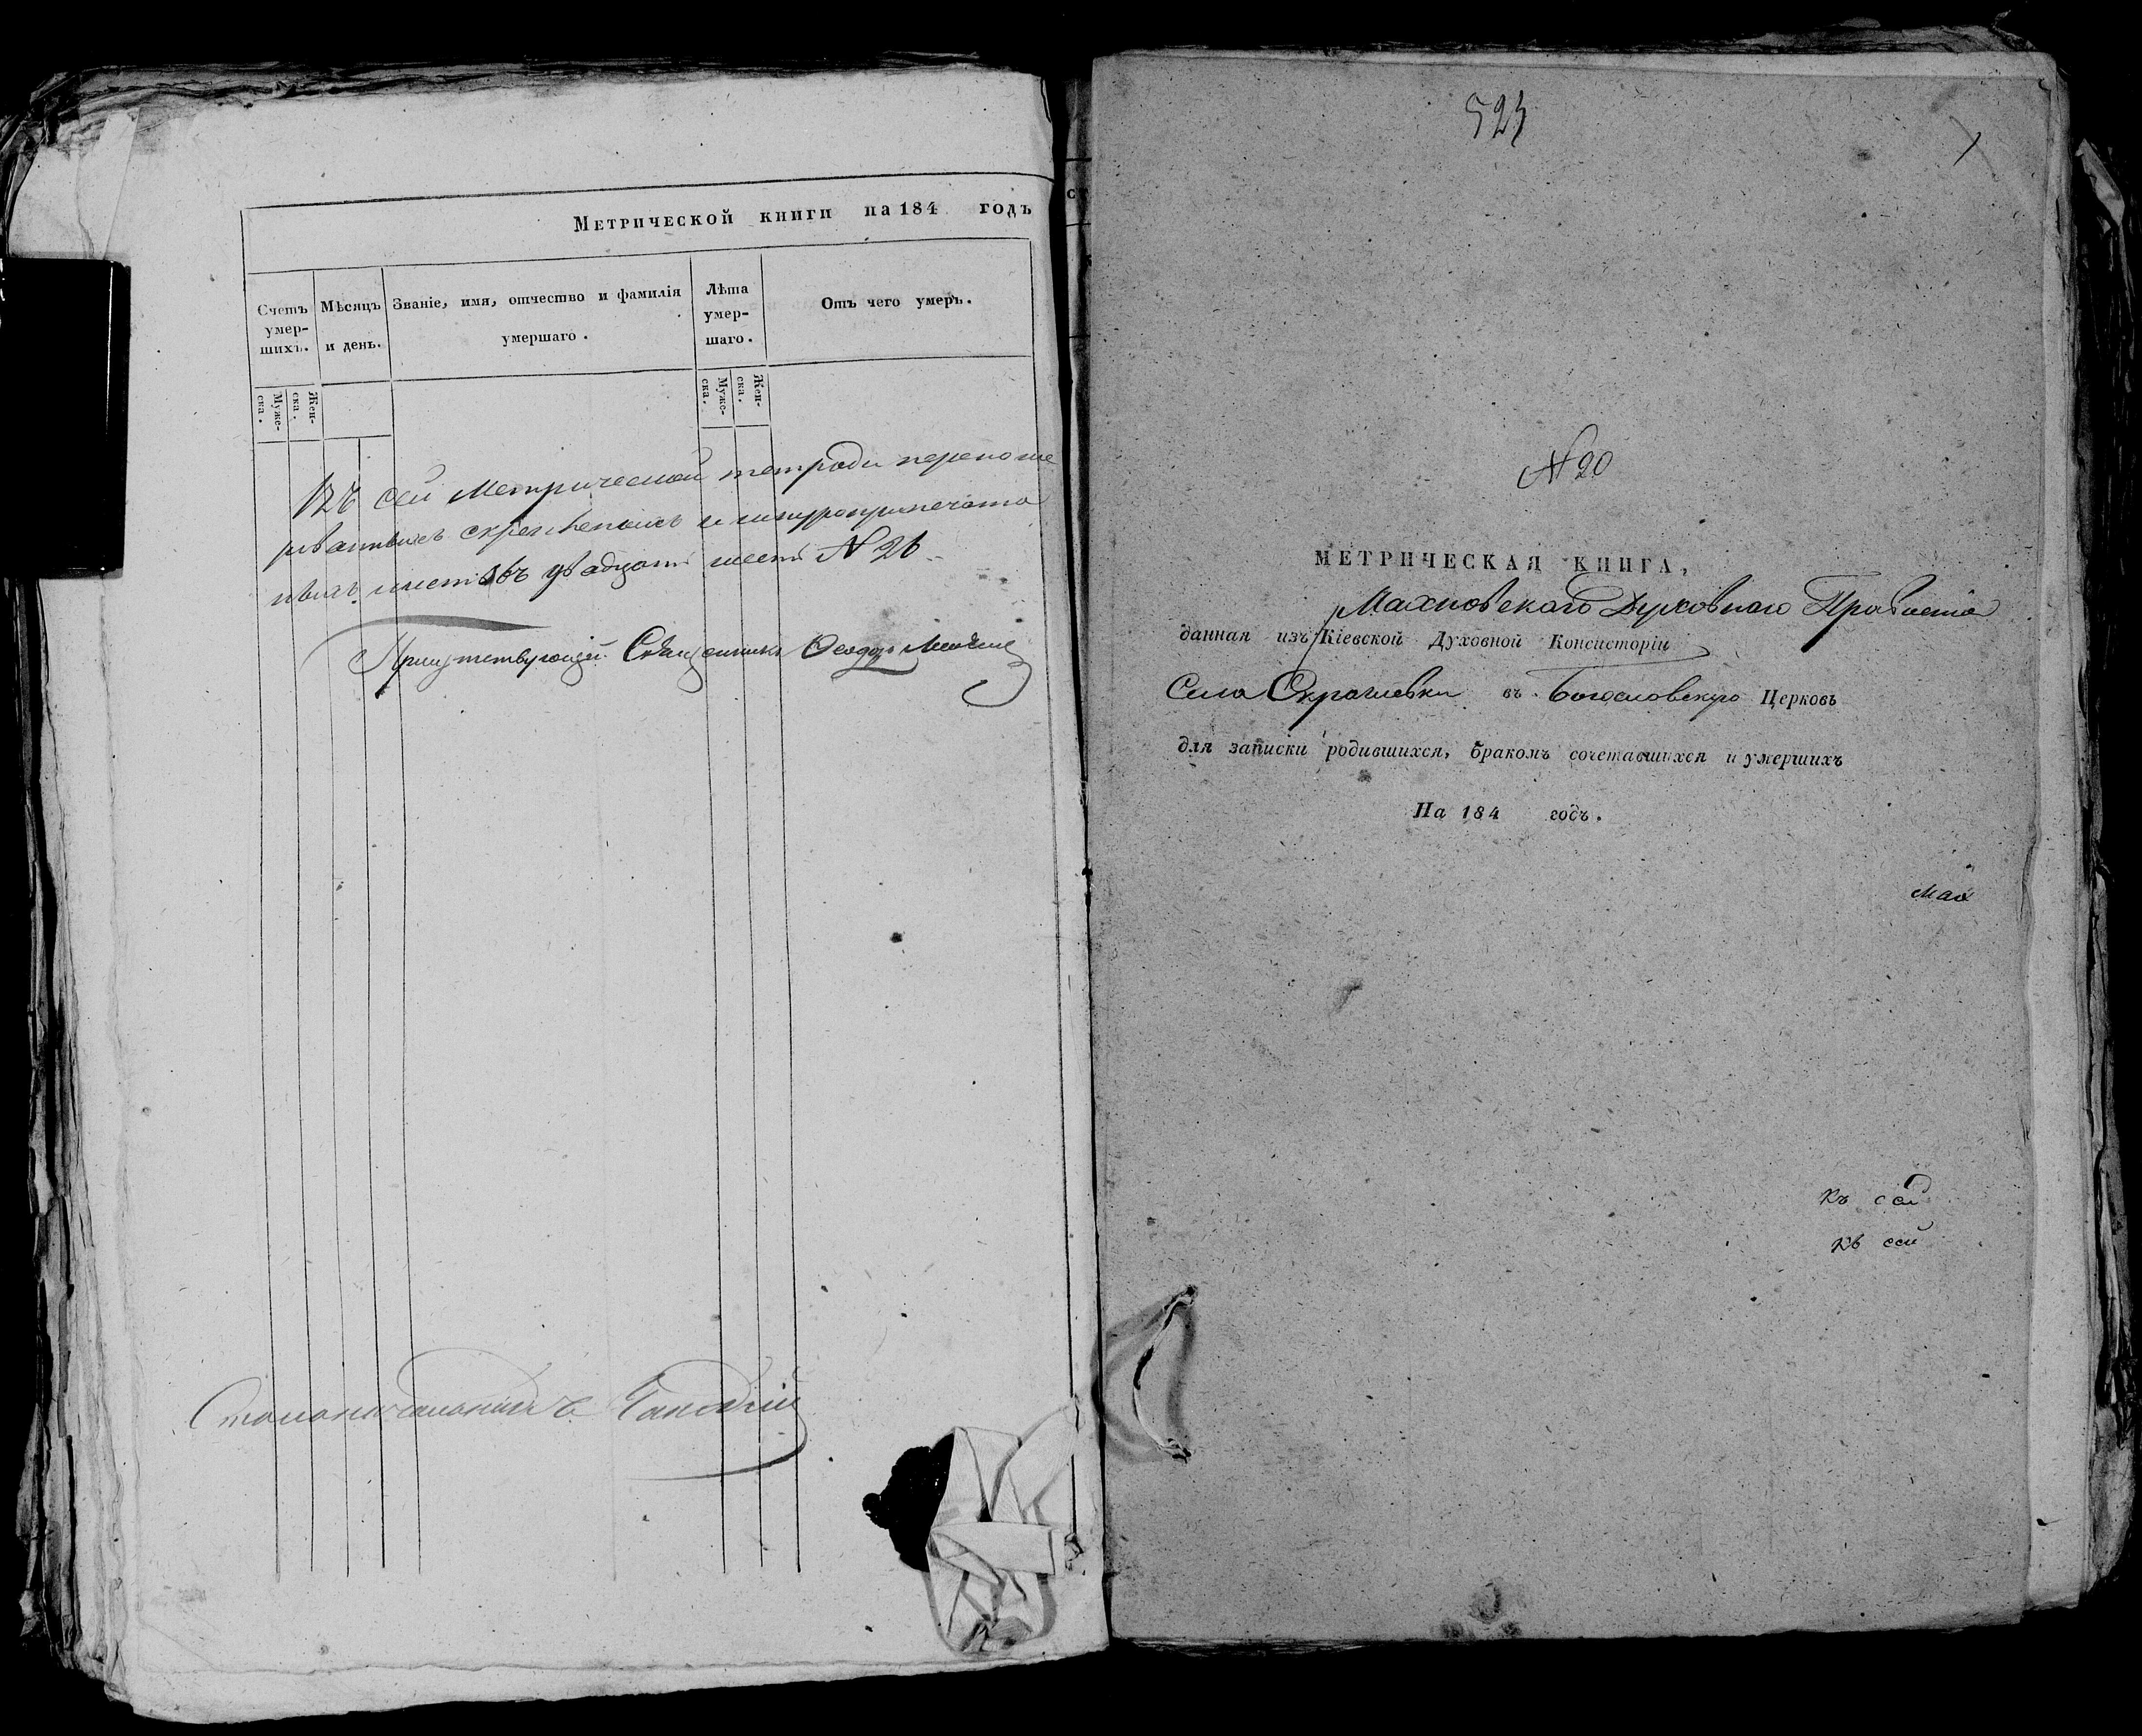 Метрической книги на 184 годъ
Счетъ умер-шихъ.
Мѣсяцъ и день.
Званіе, имя, отчество и фамилія умершаго.
Лѣта умер-шаго.
Отъ чего умеръ.
Муже-ска.
Жен-ска.
Муже-ска.
Жен-ска.
Въ сей Метрической тетради перенуме
рованныхъ скрепленыхъ и шнуроприпечата
ныхъ листовъ двадцать шесть N 26
Присутствующій Священникъ Ѳеодоръ
Столоначальникъ
523
N 20
МЕТРИЧЕСКАЯ КНИГА,
Махновскаго Духовнаго Правленія
данная изъ Кіевской Духовной Консисторіи
Села Скрагиевки въ Богословскую Церковь
для записки родившихся, бракомъ сочетавшихся и умершихъ
На 184 годъ.
Мах
Къ сей
Къ сей